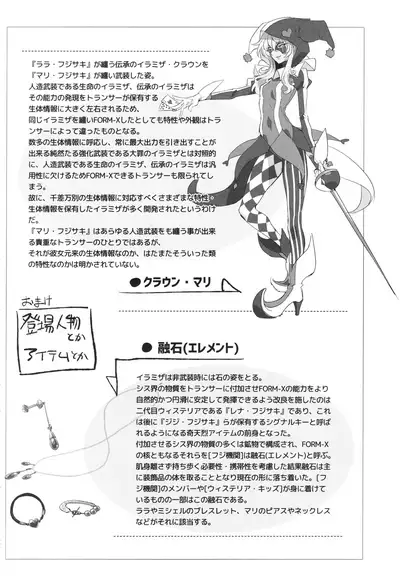 『ララ・フジサキ』が纏う伝承のイラミザ・クラウンを
『マリ・フジサキ』が纏い武装した姿。
人造武装である生命のイラミザ、伝承のイラミザは
その能力の発現をトランサーが保有する
生体情報に大きく左右されるため、
同じイラミザを纏いFORM-Xしたとしても特性や外観はトラ
ンサーによって違ったものとなる。
数多の生体情報に呼応し、常に最大出力を引き出すことが
出来る純然たる強化武装である大罪のイラミザとは対照的
に、人造武装である生命のイラミザ、伝承のイラミザは汎
用性に欠けるためFORM-Xできるトランサーも限られてし
まう。
故に、千差万別の生体情報に対応すべくさまざまな特性・
生体情報を保有したイラミザが多く開発されたというわけ
だ。
『マリ・フジサキ』はあらゆる人造武装をも纏う事が出来
る貴重なトランサーのひとりではあるが、
それが彼女元来のものなのか、はたまたそういった類
の特性なのかは明かされていない。
● クラウン・マリ
おまけ
登場人物
とか
アイテムとか
● 融石(エレメント)
イラミザは非武装時には石の姿をとる。
シス界の物質をトランサーに付加させFORM-Xの能力をより
自然的かつ円滑に安定して発揮できるよう改良を施したのは
二代目ウィステリアである『レナ・フジサキ』であり、これ
は後に『ジジ・フジサキ』らが保有するシグナルキーと呼ば
れるようになる奇天烈アイテムの前身となった。
付加させるシス界の物質の多くは鉱物で構成され、FORM-X
の核ともなるそれらを[フジ機関]は融石(エレメント)と呼ぶ。
肌身離さず持ち歩く必要性・携帯性を考慮した結果融石は主
に装飾品の体を取ることとなり現在の形に落ち着いた。[フ
ジ機関]のメンバーや[ウィステリア・キッズ]が身に着けて
いるものの一部はこの融石である。
ララやミシェルのブレスレット、マリのピアスやネックレス
などがそれに該当する。